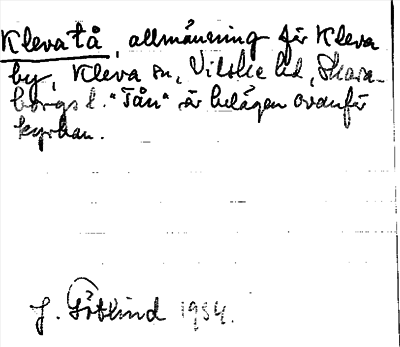 Klevatå, allmänning för Kleva
by, Kleva sn, Vilske hd, Skara-
borgs l. "Tån" är belägen ovanför
kyrkan.
J. Götlind 1934.